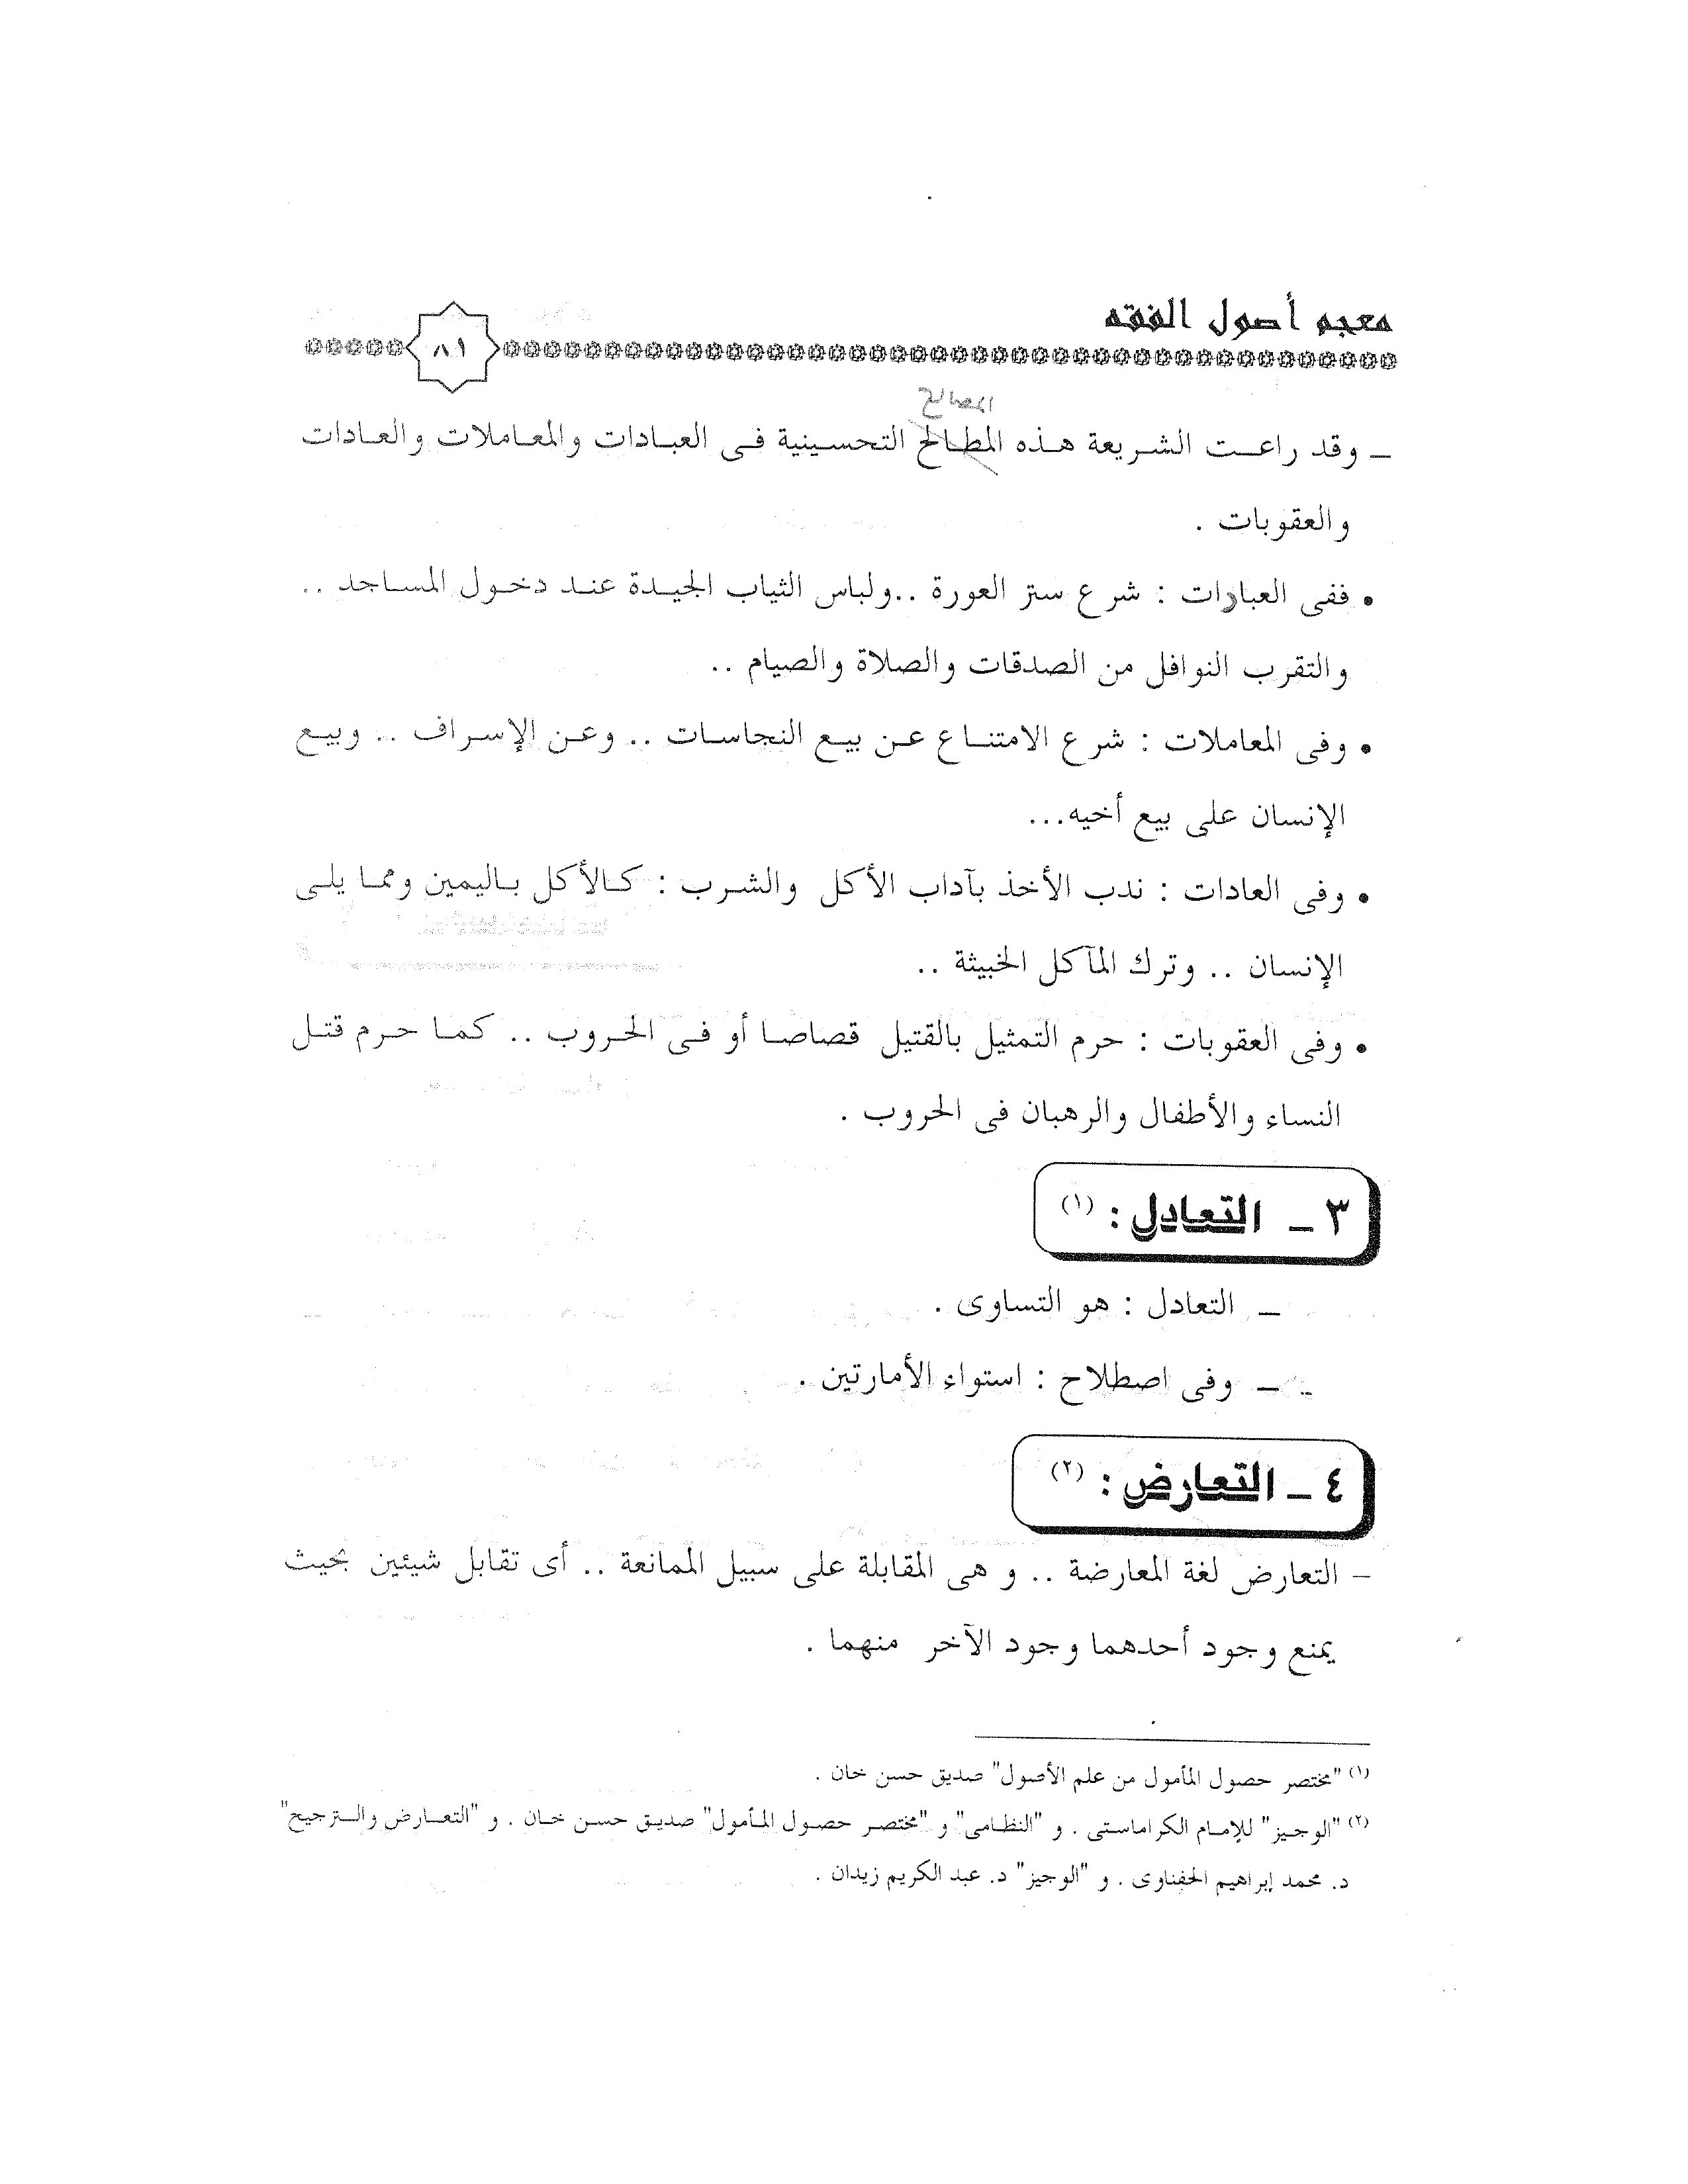 معجم أصول الفقه
٨١
المصالح
ـ وقد راعت الشريعة هذه المطالح التحسينية فى العبادات والمعاملات والعادات
والعقوبات .
• ففى العبارات : شرع ستر العورة ..ولباس الثياب الجيدة عند دخول المساجد ..
والتقرب النوافل من الصدقات والصلاة والصيام ..
• وفى المعاملات : شرع الامتناع عن بيع النجاسات .. وعن الإسراف .. وبيع
الإنسان على بيع أخيه...
• وفى العادات : ندب الأخذ بآداب الأكل والشرب : كالأكل باليمين ومما يلى
الإنسان .. وترك المآكل الخبيثة ..
• وفى العقوبات : حرم التمثيل بالقتيل قصاصا أو فى الحروب .. كما حرم قتل
النساء والأطفال والرهبان فى الحروب .
٣ ـ التعادل : (١)
ـ التعادل : هو التساوى .
ـ وفى اصطلاح : استواء الأمارتين .
٤ ـ التعارض : (٢)
– التعارض لغة المعارضة .. و هى المقابلة على سبيل الممانعة .. أى تقابل شيئين بحيث
يمنع وجود أحدهما وجود الآخر منهما .
(١) "مختصر حصول المأمول من علم الأصول" صديق حسن خان .
(٢) "الوجيز" للإمام الكراماستى . و "النظامى" و "مختصر حصول المأمول" صديق حسن خان . و "التعارض والترجيح"
د. محمد إبراهيم الحفناوى . و "الوجيز" د. عبد الكريم زيدان .